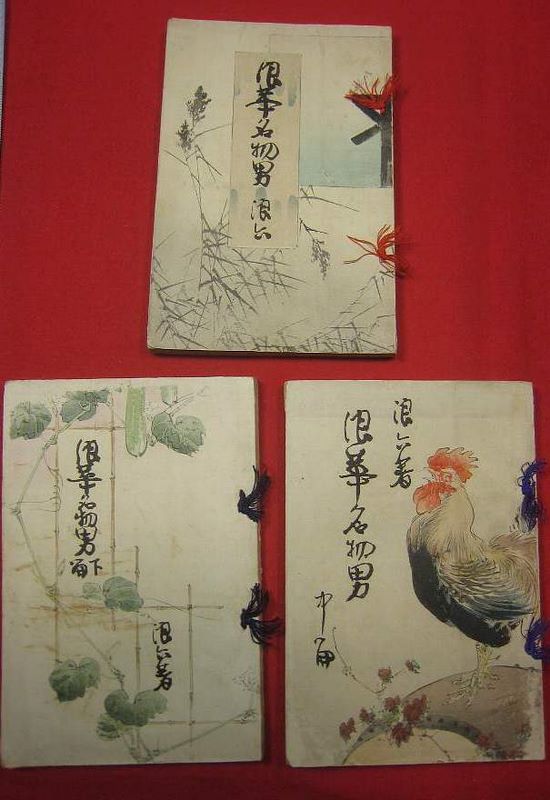 浪華名物男 浪六
浪六著
浪華名物男
中篇
浪華名物男
下篇
浪六著